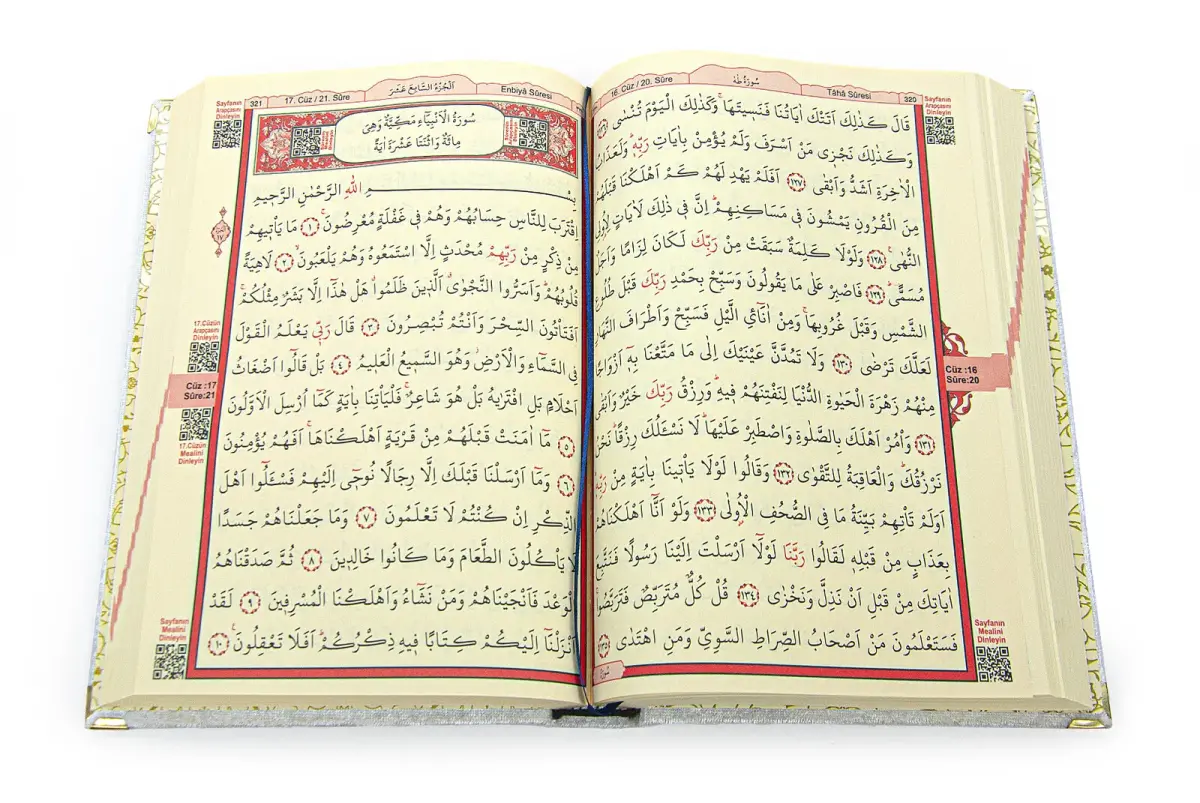 16. Cüz / 20. Sûre
سُورَةُ طٰهٰ
Tâhâ Sûresi
320
Sayfanın
Arapçasını
Dinleyin
قَالَ كَذٰلِكَ اَتَتْكَ اٰيَاتُنَا فَنَسٖيتَهَاۚ وَكَذٰلِكَ الْيَوْمَ تُنْسٰى ﴿١٢٦﴾
وَكَذٰلِكَ نَجْزٖى مَنْ اَسْرَفَ وَلَمْ يُؤْمِنْ بِاٰيَاتِ رَبِّهٖۜ وَلَعَذَابُ
الْاٰخِرَةِ اَشَدُّ وَاَبْقٰى ﴿١٢٧﴾ اَفَلَمْ يَهْدِ لَهُمْ كَمْ اَهْلَكْنَا قَبْلَهُمْ
مِنَ الْقُرُونِ يَمْشُونَ فٖى مَسَاكِنِهِمْۜ اِنَّ فٖى ذٰلِكَ لَاٰيَاتٍ لِاُولِى
النُّهٰىۚ ﴿١٢٨﴾ وَلَوْلَا كَلِمَةٌ سَبَقَتْ مِنْ رَبِّكَ لَكَانَ لِزَامًا وَاَجَلٌ
مُسَمًّىۜ ﴿١٢٩﴾ فَاصْبِرْ عَلٰى مَا يَقُولُونَ وَسَبِّحْ بِحَمْدِ رَبِّكَ قَبْلَ طُلُوعِ
الشَّمْسِ وَقَبْلَ غُرُوبِهَاۚ وَمِنْ اٰنَٓائِ الَّيْلِ فَسَبِّحْ وَاَطْرَافَ النَّهَارِ
لَعَلَّكَ تَرْضٰى ﴿١٣٠﴾ وَلَا تَمُدَّنَّ عَيْنَيْكَ اِلٰى مَا مَتَّعْنَا بِهٖٓ اَزْوَاجًا
مِنْهُمْ زَهْرَةَ الْحَيٰوةِ الدُّنْيَا لِنَفْتِنَهُمْ فٖيهِۜ وَرِزْقُ رَبِّكَ خَيْرٌ وَاَبْقٰى
﴿١٣١﴾ وَأْمُرْ اَهْلَكَ بِالصَّلٰوةِ وَاصْطَبِرْ عَلَيْهَاۜ لَا نَسْـَٔلُكَ رِزْقًاۜ نَحْنُ
نَرْزُقُكَۜ وَالْعَاقِبَةُ لِلتَّقْوٰى ﴿١٣٢﴾ وَقَالُوا لَوْلَا يَأْتٖينَا بِاٰيَةٍ مِنْ رَبِّهٖۜ
اَوَلَمْ تَأْتِهِمْ بَيِّنَةُ مَا فِى الصُّحُفِ الْاُولٰى ﴿١٣٣﴾ وَلَوْ اَنَّٓا اَهْلَكْنَاهُمْ
بِعَذَابٍ مِنْ قَبْلِهٖ لَقَالُوا رَبَّنَا لَوْلَٓا اَرْسَلْتَ اِلَيْنَا رَسُولًا فَنَتَّبِعَ
اٰيَاتِكَ مِنْ قَبْلِ اَنْ نَذِلَّ وَنَخْزٰى ﴿١٣٤﴾ قُلْ كُلٌّ مُتَرَبِّصٌ فَتَرَبَّصُواۚ
فَسَتَعْلَمُونَ مَنْ اَصْحَابُ الصِّرَاطِ السَّوِىِّ وَمَنِ اهْتَدٰى ﴿١٣٥﴾
Cüz :16
Sûre:20
Sayfanın
Mealini
Dinleyin
321
17. Cüz / 21. Sûre
اَلْجُزْءُ السَّابِعُ عَشَرَ
Enbiyâ Sûresi
Sayfanın
Arapçasını
Dinleyin
سُورَةُ الْاَنْبِيَٓاءِ مَكِّيَّةٌ وَهِىَ
مِائَةٌ وَاثْنَتَا عَشْرَةَ اٰيَةً
بِسْمِ اللّٰهِ الرَّحْمٰنِ الرَّحٖيمِ
اِقْتَرَبَ لِلنَّاسِ حِسَابُهُمْ وَهُمْ فٖى غَفْلَةٍ مُعْرِضُونَۚ ﴿١﴾ مَا يَأْتٖيهِمْ
مِنْ ذِكْرٍ مِنْ رَبِّهِمْ مُحْدَثٍ اِلَّا اسْتَمَعُوهُ وَهُمْ يَلْعَبُونَۙ ﴿٢﴾ لَاهِيَةً
قُلُوبُهُمْۜ وَاَسَرُّوا النَّجْوَىۗ الَّذٖينَ ظَلَمُواۗ هَلْ هٰذَٓا اِلَّا بَشَرٌ مِثْلُكُمْۚ
اَفَتَأْتُونَ السِّحْرَ وَاَنْتُمْ تُبْصِرُونَ ﴿٣﴾ قَالَ رَبّٖى يَعْلَمُ الْقَوْلَ
فِى السَّمَٓاءِ وَالْاَرْضِۘ وَهُوَ السَّمٖيعُ الْعَلٖيمُ ﴿٤﴾ بَلْ قَالُٓوا اَضْغَاثُ
اَحْلَامٍ بَلِ افْتَرٰيهُ بَلْ هُوَ شَاعِرٌۚ فَلْيَأْتِنَا بِاٰيَةٍ كَمَٓا اُرْسِلَ الْاَوَّلُونَ
﴿٥﴾ مَٓا اٰمَنَتْ قَبْلَهُمْ مِنْ قَرْيَةٍ اَهْلَكْنَاهَاۚ اَفَهُمْ يُؤْمِنُونَ
﴿٦﴾ وَمَٓا اَرْسَلْنَا قَبْلَكَ اِلَّا رِجَالًا نُوحٖٓى اِلَيْهِمْ فَسْـَٔلُٓوا اَهْلَ
الذِّكْرِ اِنْ كُنْتُمْ لَا تَعْلَمُونَ ﴿٧﴾ وَمَا جَعَلْنَاهُمْ جَسَدًا
لَا يَأْكُلُونَ الطَّعَامَ وَمَا كَانُوا خَالِدٖينَ ﴿٨﴾ ثُمَّ صَدَقْنَاهُمُ
الْوَعْدَ فَاَنْجَيْنَاهُمْ وَمَنْ نَشَٓاءُ وَاَهْلَكْنَا الْمُسْرِفٖينَ ﴿٩﴾ لَقَدْ
اَنْزَلْنَٓا اِلَيْكُمْ كِتَابًا فٖيهِ ذِكْرُكُمْۜ اَفَلَا تَعْقِلُونَ۟ ﴿١٠﴾
17.Cüzün
Arapçasını
Dinleyin
Cüz :17
Sûre:21
17.Cüzün
Mealini
Dinleyin
Sayfanın
Mealini
Dinleyin